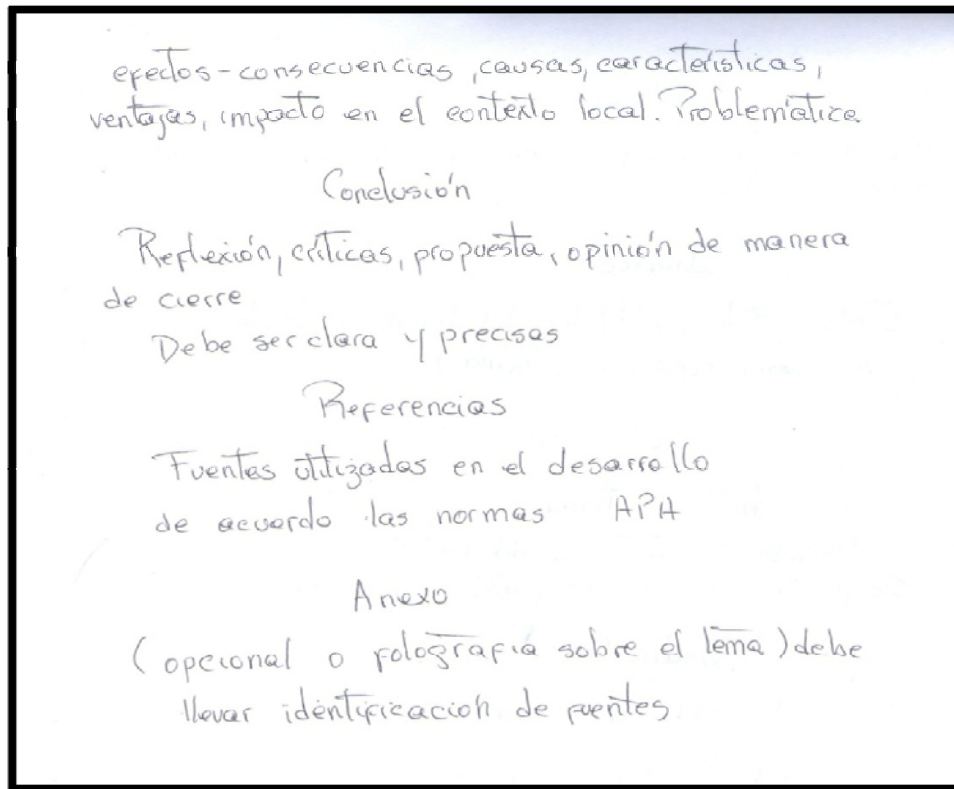 efectos-consecuencias, causas, características,
ventajas, impacto en el contexto local. Problemática
Conclusión
Reflexión, críticas, propuesta, opinión de manera
de cierre
Debe ser clara y precisas
Referencias
Fuentes utilizadas en el desarrollo
de acuerdo las normas APA
Anexo
(opcional o fotografía sobre el tema) debe
llevar identificación de fuentes